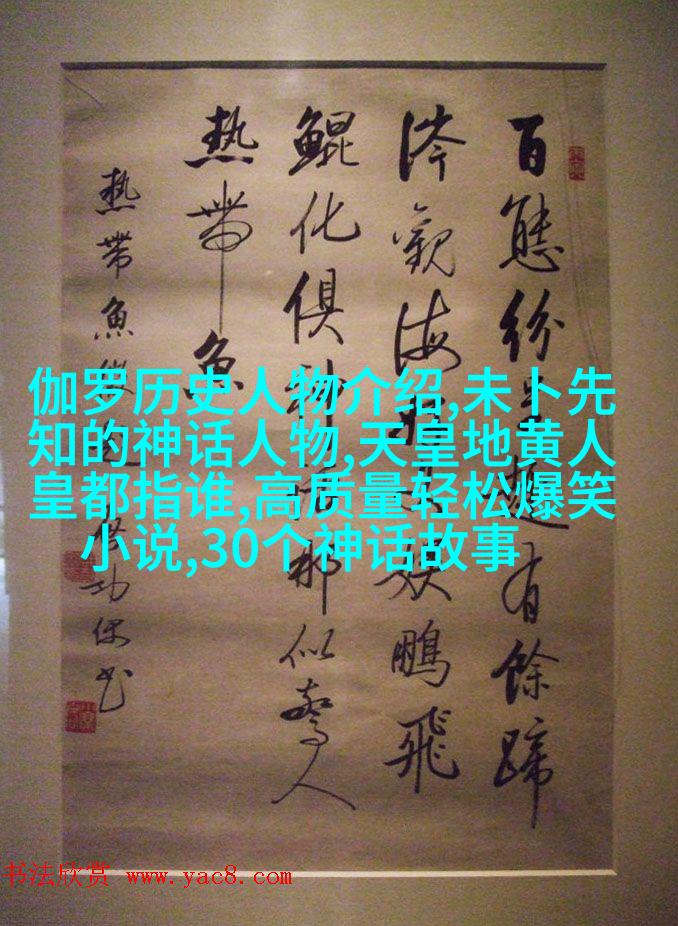 百態紛呈趣有餘蹄
涔觀海鵬飛
鯤化俱神話那似驚人
熱帶魚
熱帶魚功保书
伽罗历史人物介绍,未卜先
知的神话人物,天皇地黄人
皇都指谁,高质量轻松爆笑
小说,30个神话故事
书法欣赏 www.yac8.com